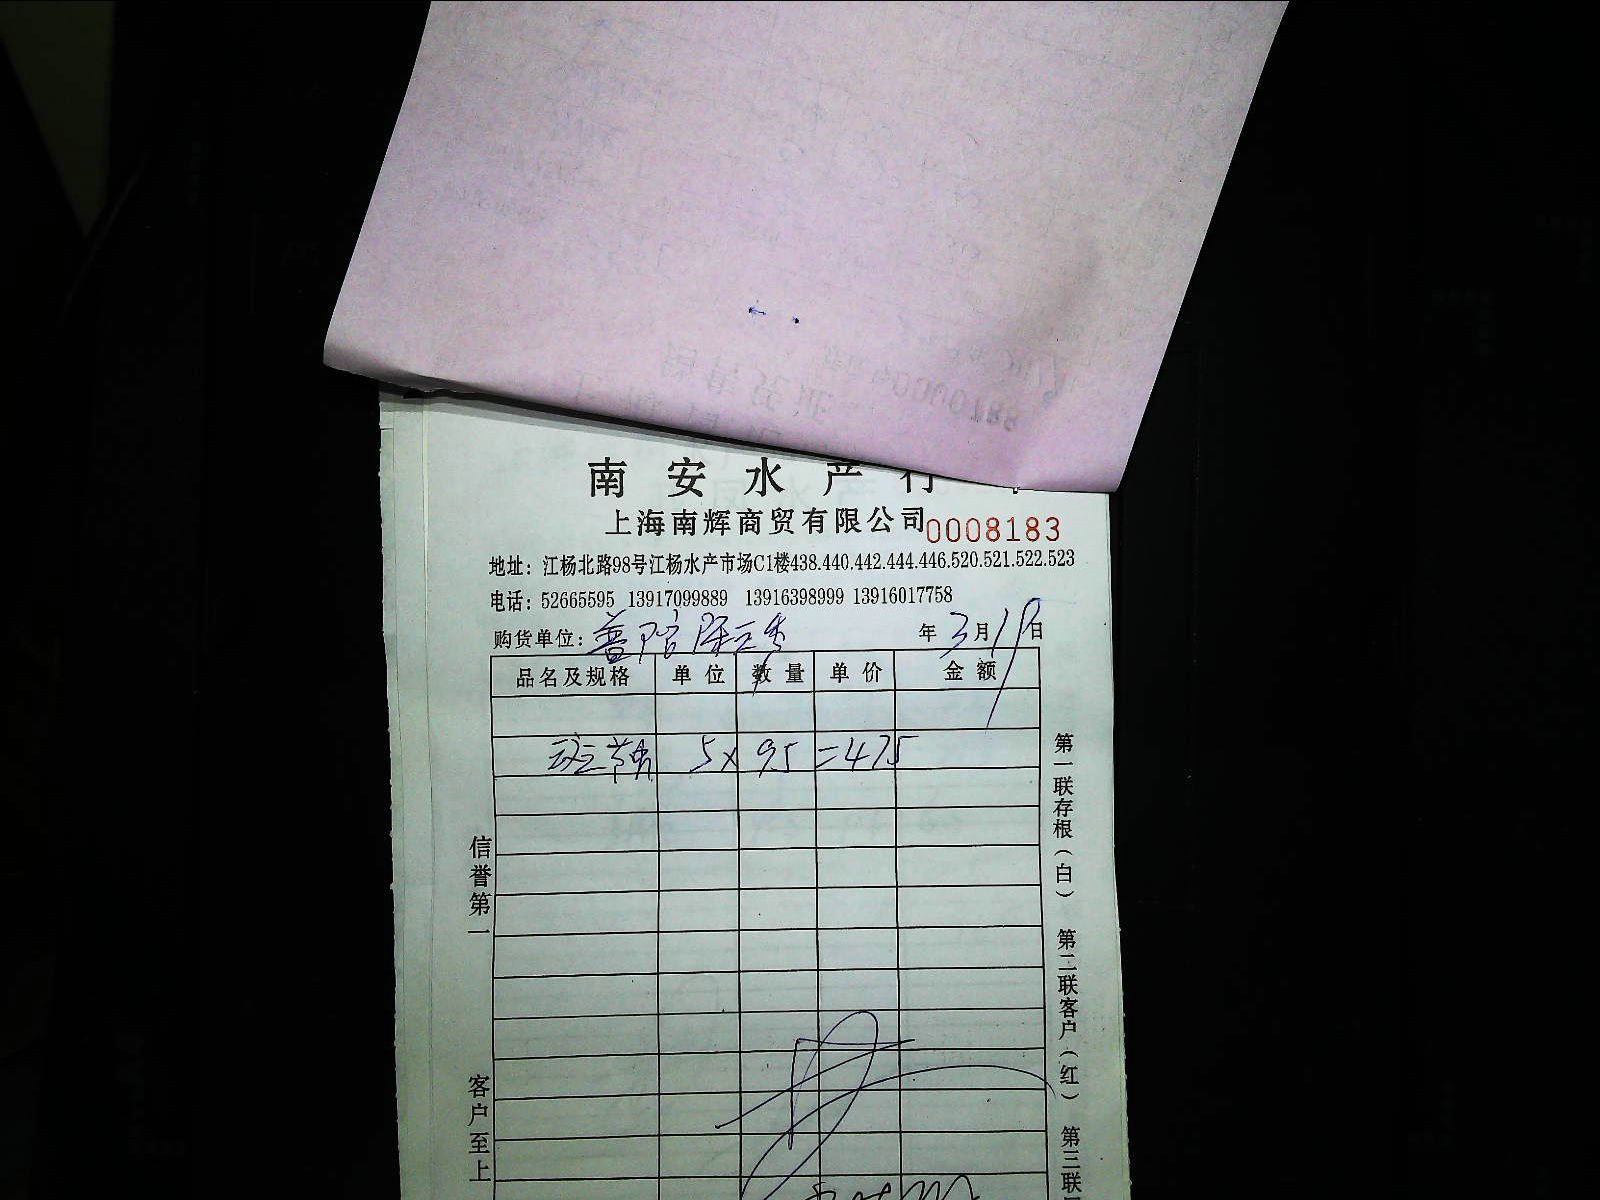 南安水产行
上海南辉商贸有限公司 0008183
地址：江杨北路98号江杨水产市场C1楼438.440.442.444.446.520.521.522.523
电话：52665595 13917099889 13916398999 13916017758
购货单位：普陀陈三秀 年3月19日
品名及规格 单位 数量 单价 金额
斑节 5×95=475
信誉第一
客户至上
第一联存根（白）
第二联客户（红）
第三联